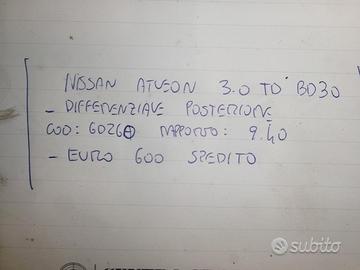 NISSAN ATLEON 3.0 TD BD30
- DIFFERENZIALE POSTERIORE
COD: 6026 RAPPORTO: 9.40
- EURO 600 SPEDITO
subito